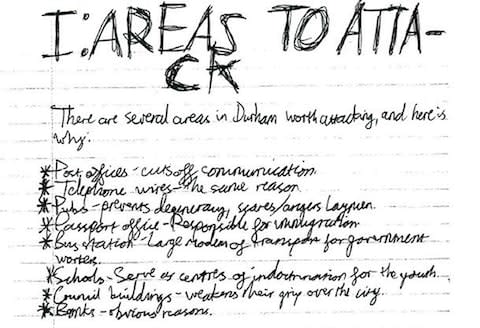 I: AREAS TO ATTA-
CK
There are several areas in Durham worth attacking, and here is
why:
* Post offices - cuts off communication.
* Telephone wires - The same reason.
* Pubs - prevents degeneracy, scares/angers laymen.
* Passport office - Responsible for immigration
* Bus station - Large modem of transport for government
workers.
* Schools - Serve as centres of indoctrination for the youth.
* Council buildings - weakens their grip over the city.
* Banks - obvious reasons.